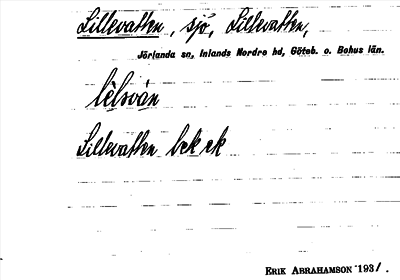 Lillevatten, sjö, Lillevatten,
Jörlanda sn, Inlands Nordre hd, Göteb. o. Bohus län.
Lillevatten bek ek
ERIK ABRAHAMSON 1931.